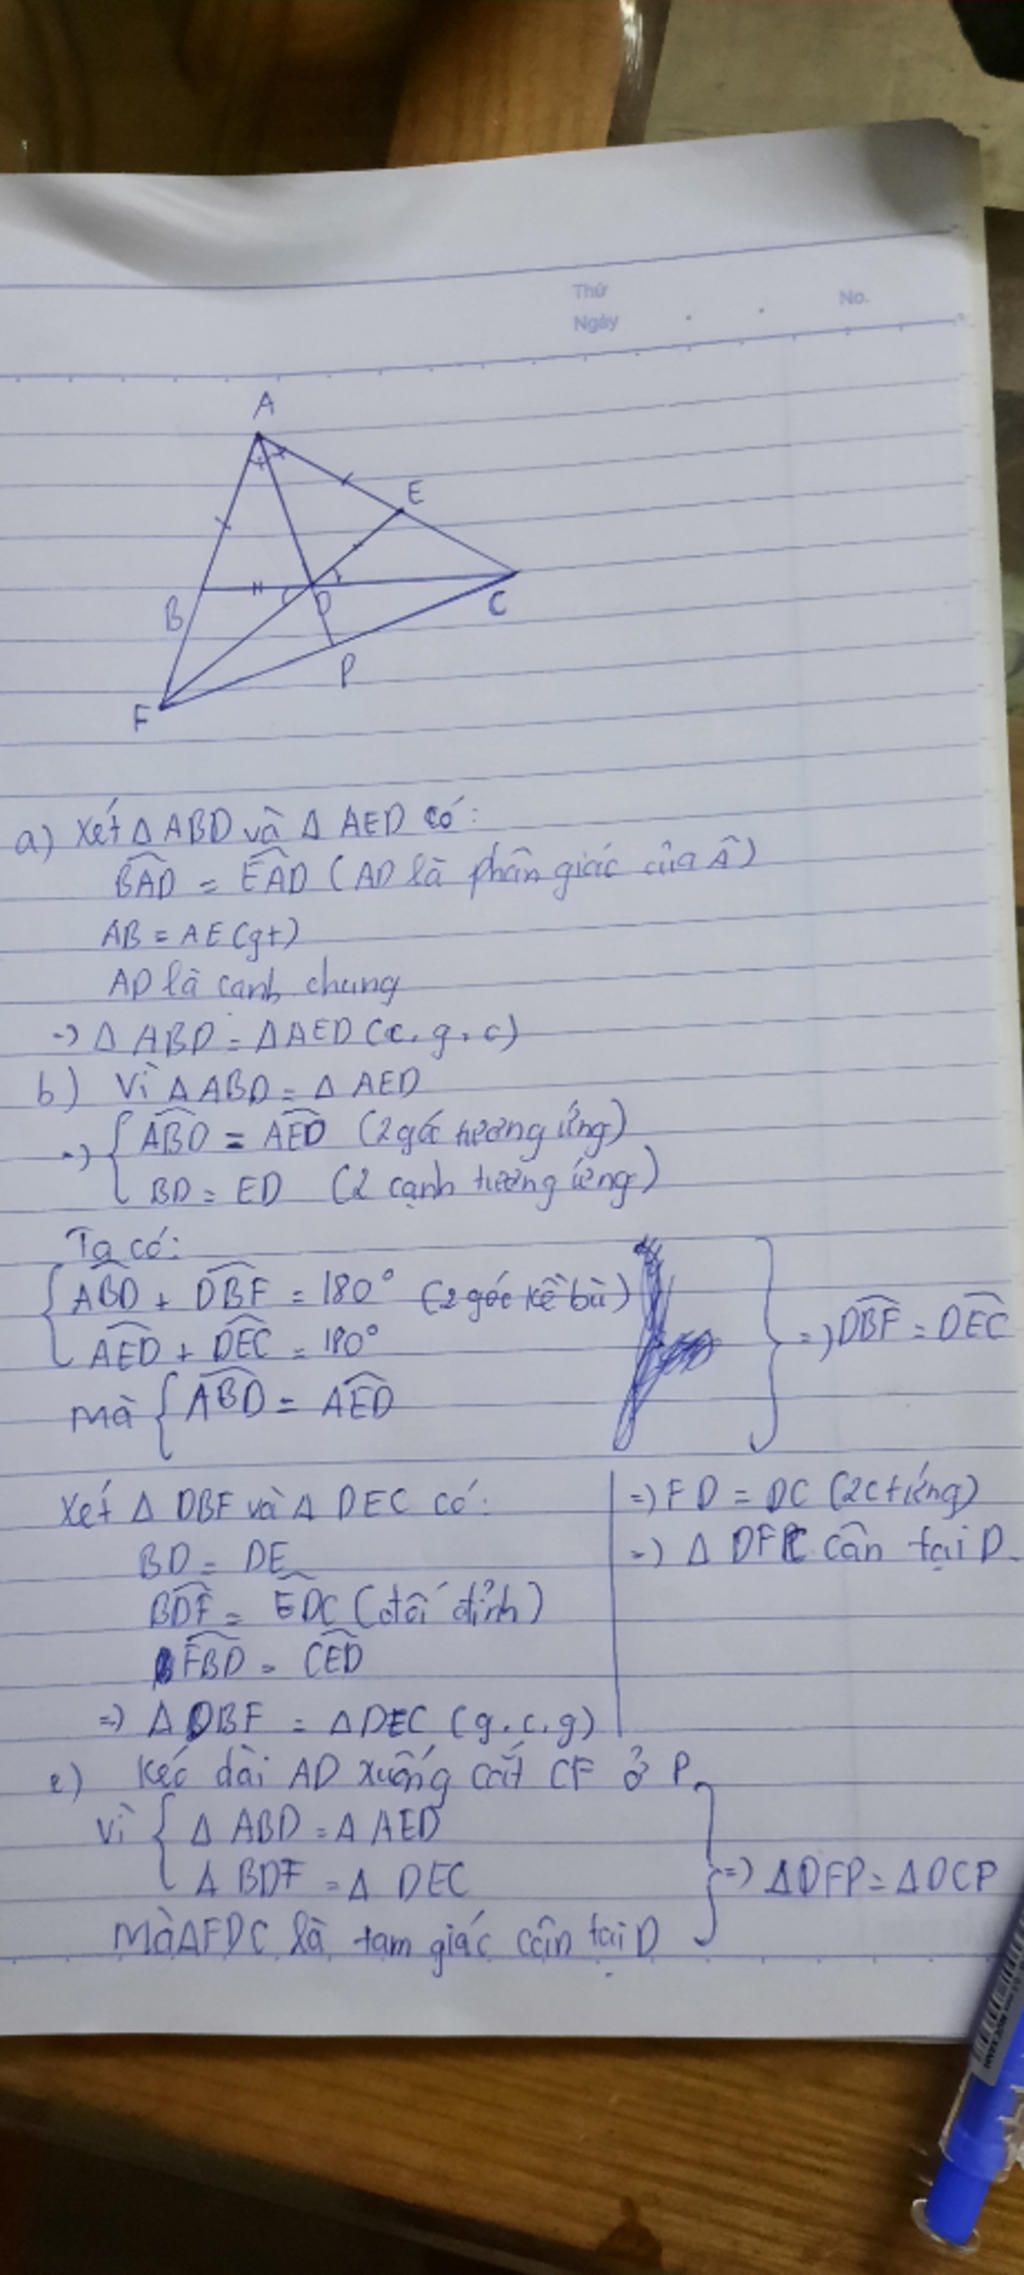 Thứ
No.
Ngày
A
E
B
D
C
P
F
a) Xét Δ ABD và Δ AED có:
BAD = EAD (AD là phân giác của Â)
AB = AE (gt)
AD là cạnh chung
=> Δ ABD = Δ AED (c.g.c)
b) Vì Δ ABD = Δ AED
=> { ABD = AED (2 góc tương ứng)
BD = ED (2 cạnh tương ứng)
Ta có:
{ ABD + DBF = 180° (2 góc kề bù)
AED + DEC = 180°
=> DBF = DEC
mà { ABD = AED
Xét Δ DBF và Δ DEC có:
BD = DE
BDF = EDC (đối đỉnh)
FBD = CED
=> Δ DBF = Δ DEC (g.c.g)
=> FD = DC (2c tứng)
=> Δ DFC cân tại D
c) Kéo dài AD xuống cắt CF ở P
Vì { Δ ABD = Δ AED
Δ BDF = Δ DEC
=> Δ DFP = Δ DCP
mà Δ FDC là tam giác cân tại D